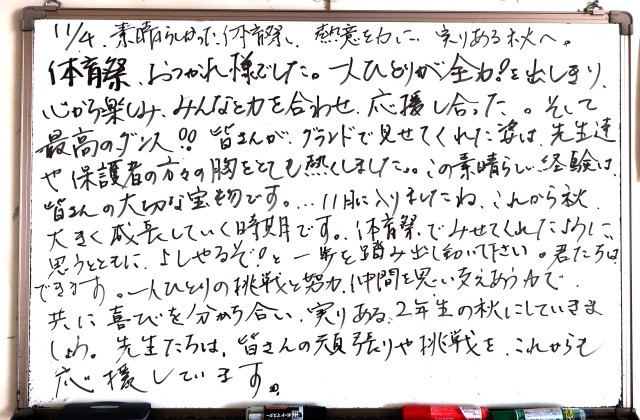 11/4. 素晴らしかった体育祭、熱意を力に、実りある秋へ。
体育祭、おつかれ様でした。一人ひとりが全力!を出しきり、
心から楽しみ、みんなと力を合わせ、応援し合った。そして
最高のダンス!! 皆さんが、グランドで見せてくれた姿は、先生達
や保護者の方々の胸をとても熱くしました。この素晴らしい経験は、
皆さんの大切な宝物です。…11月に入りましたね、これから秋、
大きく成長していく時期です。体育祭でみせてくれたように、
思うとともに、よしやるぞ!と一歩を踏み出し動いて下さい。君たちは
できます。一人ひとりの挑戦と努力、仲間を思い支えあう力で
共に喜びを分かち合い、実りある、2年生の秋にしていきま
しょう。先生たちは、皆さんの頑張りや挑戦を、これからも
応援しています。